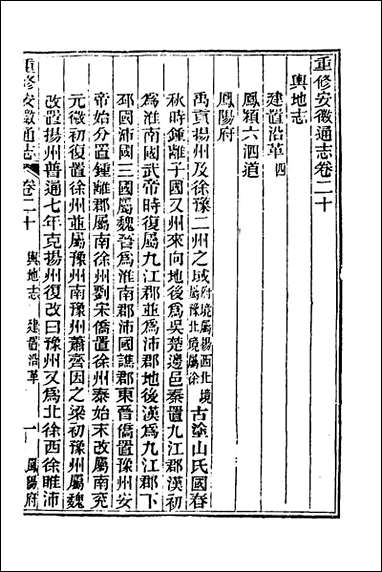 重修安徽通志卷二十
輿地志
建置沿革四
鳳潁六泗道
鳳陽府
禹貢揚州及徐豫二州之域府境屬揚西北境屬豫北境屬徐古塗山氏國春
秋時鍾離子國又州來向地後爲吳楚邊邑秦置九江郡漢初
爲淮南國武帝時復屬九江郡並爲沛郡地後漢爲九江郡下
邳國沛國三國屬魏晉爲淮南郡沛國譙郡東晉僑置豫州安
帝始分置鍾離郡屬南徐州劉宋僑置徐州泰始末改屬南兗
元徽初復置徐州並屬豫州南豫州蕭齊因之梁初豫州屬魏
改置揚州普通七年克揚州復改曰豫州又爲北徐西徐睢沛
重修安徽通志
卷二十
輿地志
建置沿革
一
鳳陽府